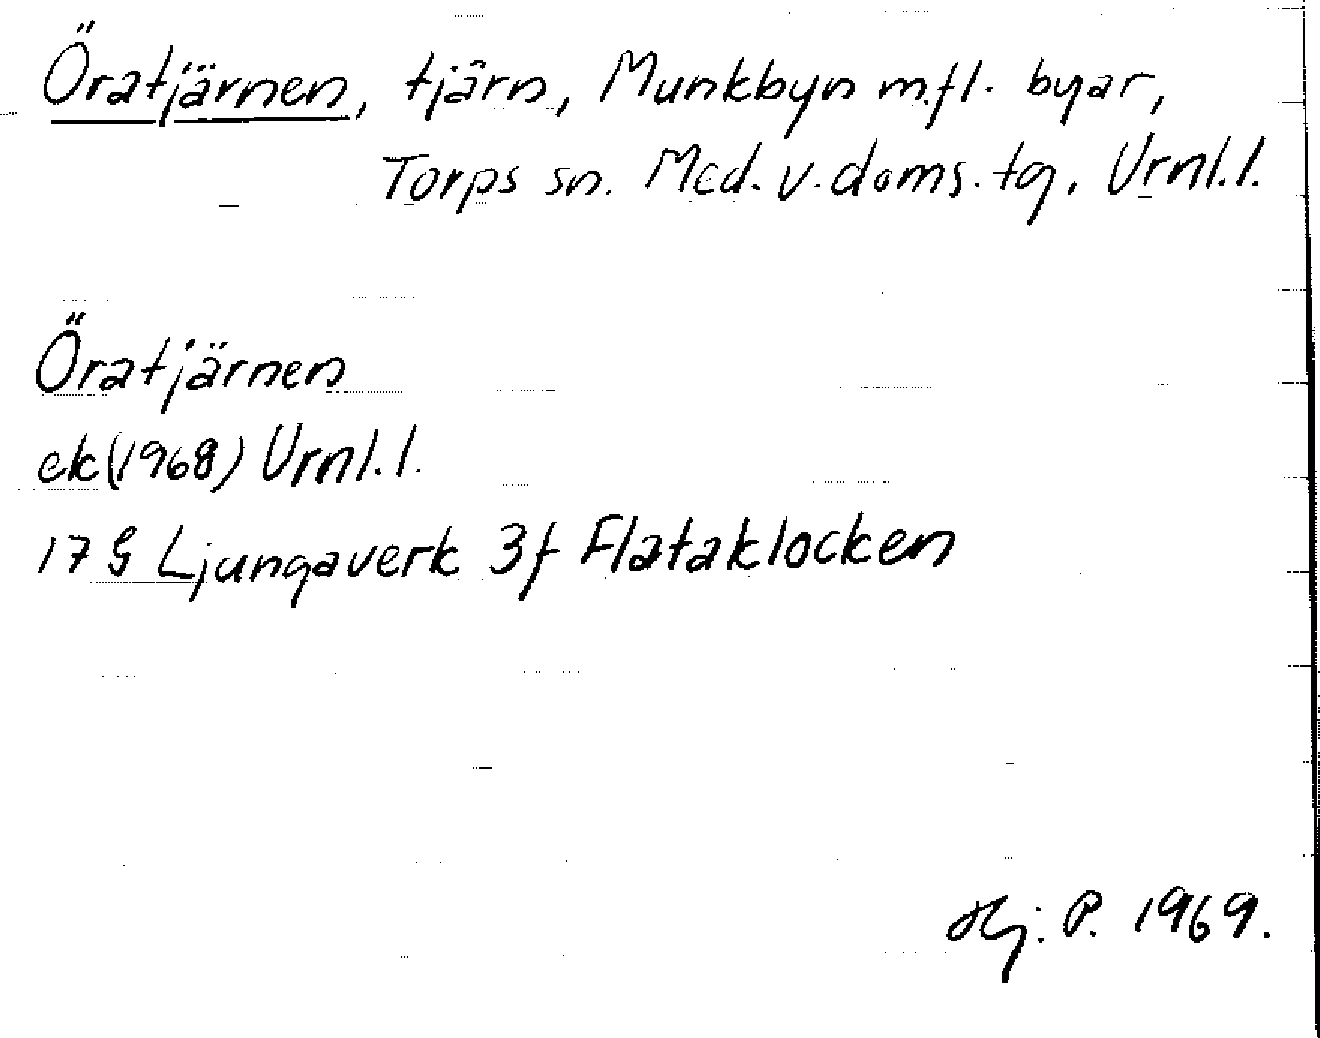 Öratjärnen, tjärn, Munkbyn m.fl. byar,
Torps sn. Med. v. doms. tg. Vrnl.l.
Öratjärnen
ek(1968) Vrnl.l.
17 G Ljungaverk 3f Flataklocken
Hj. P. 1969.